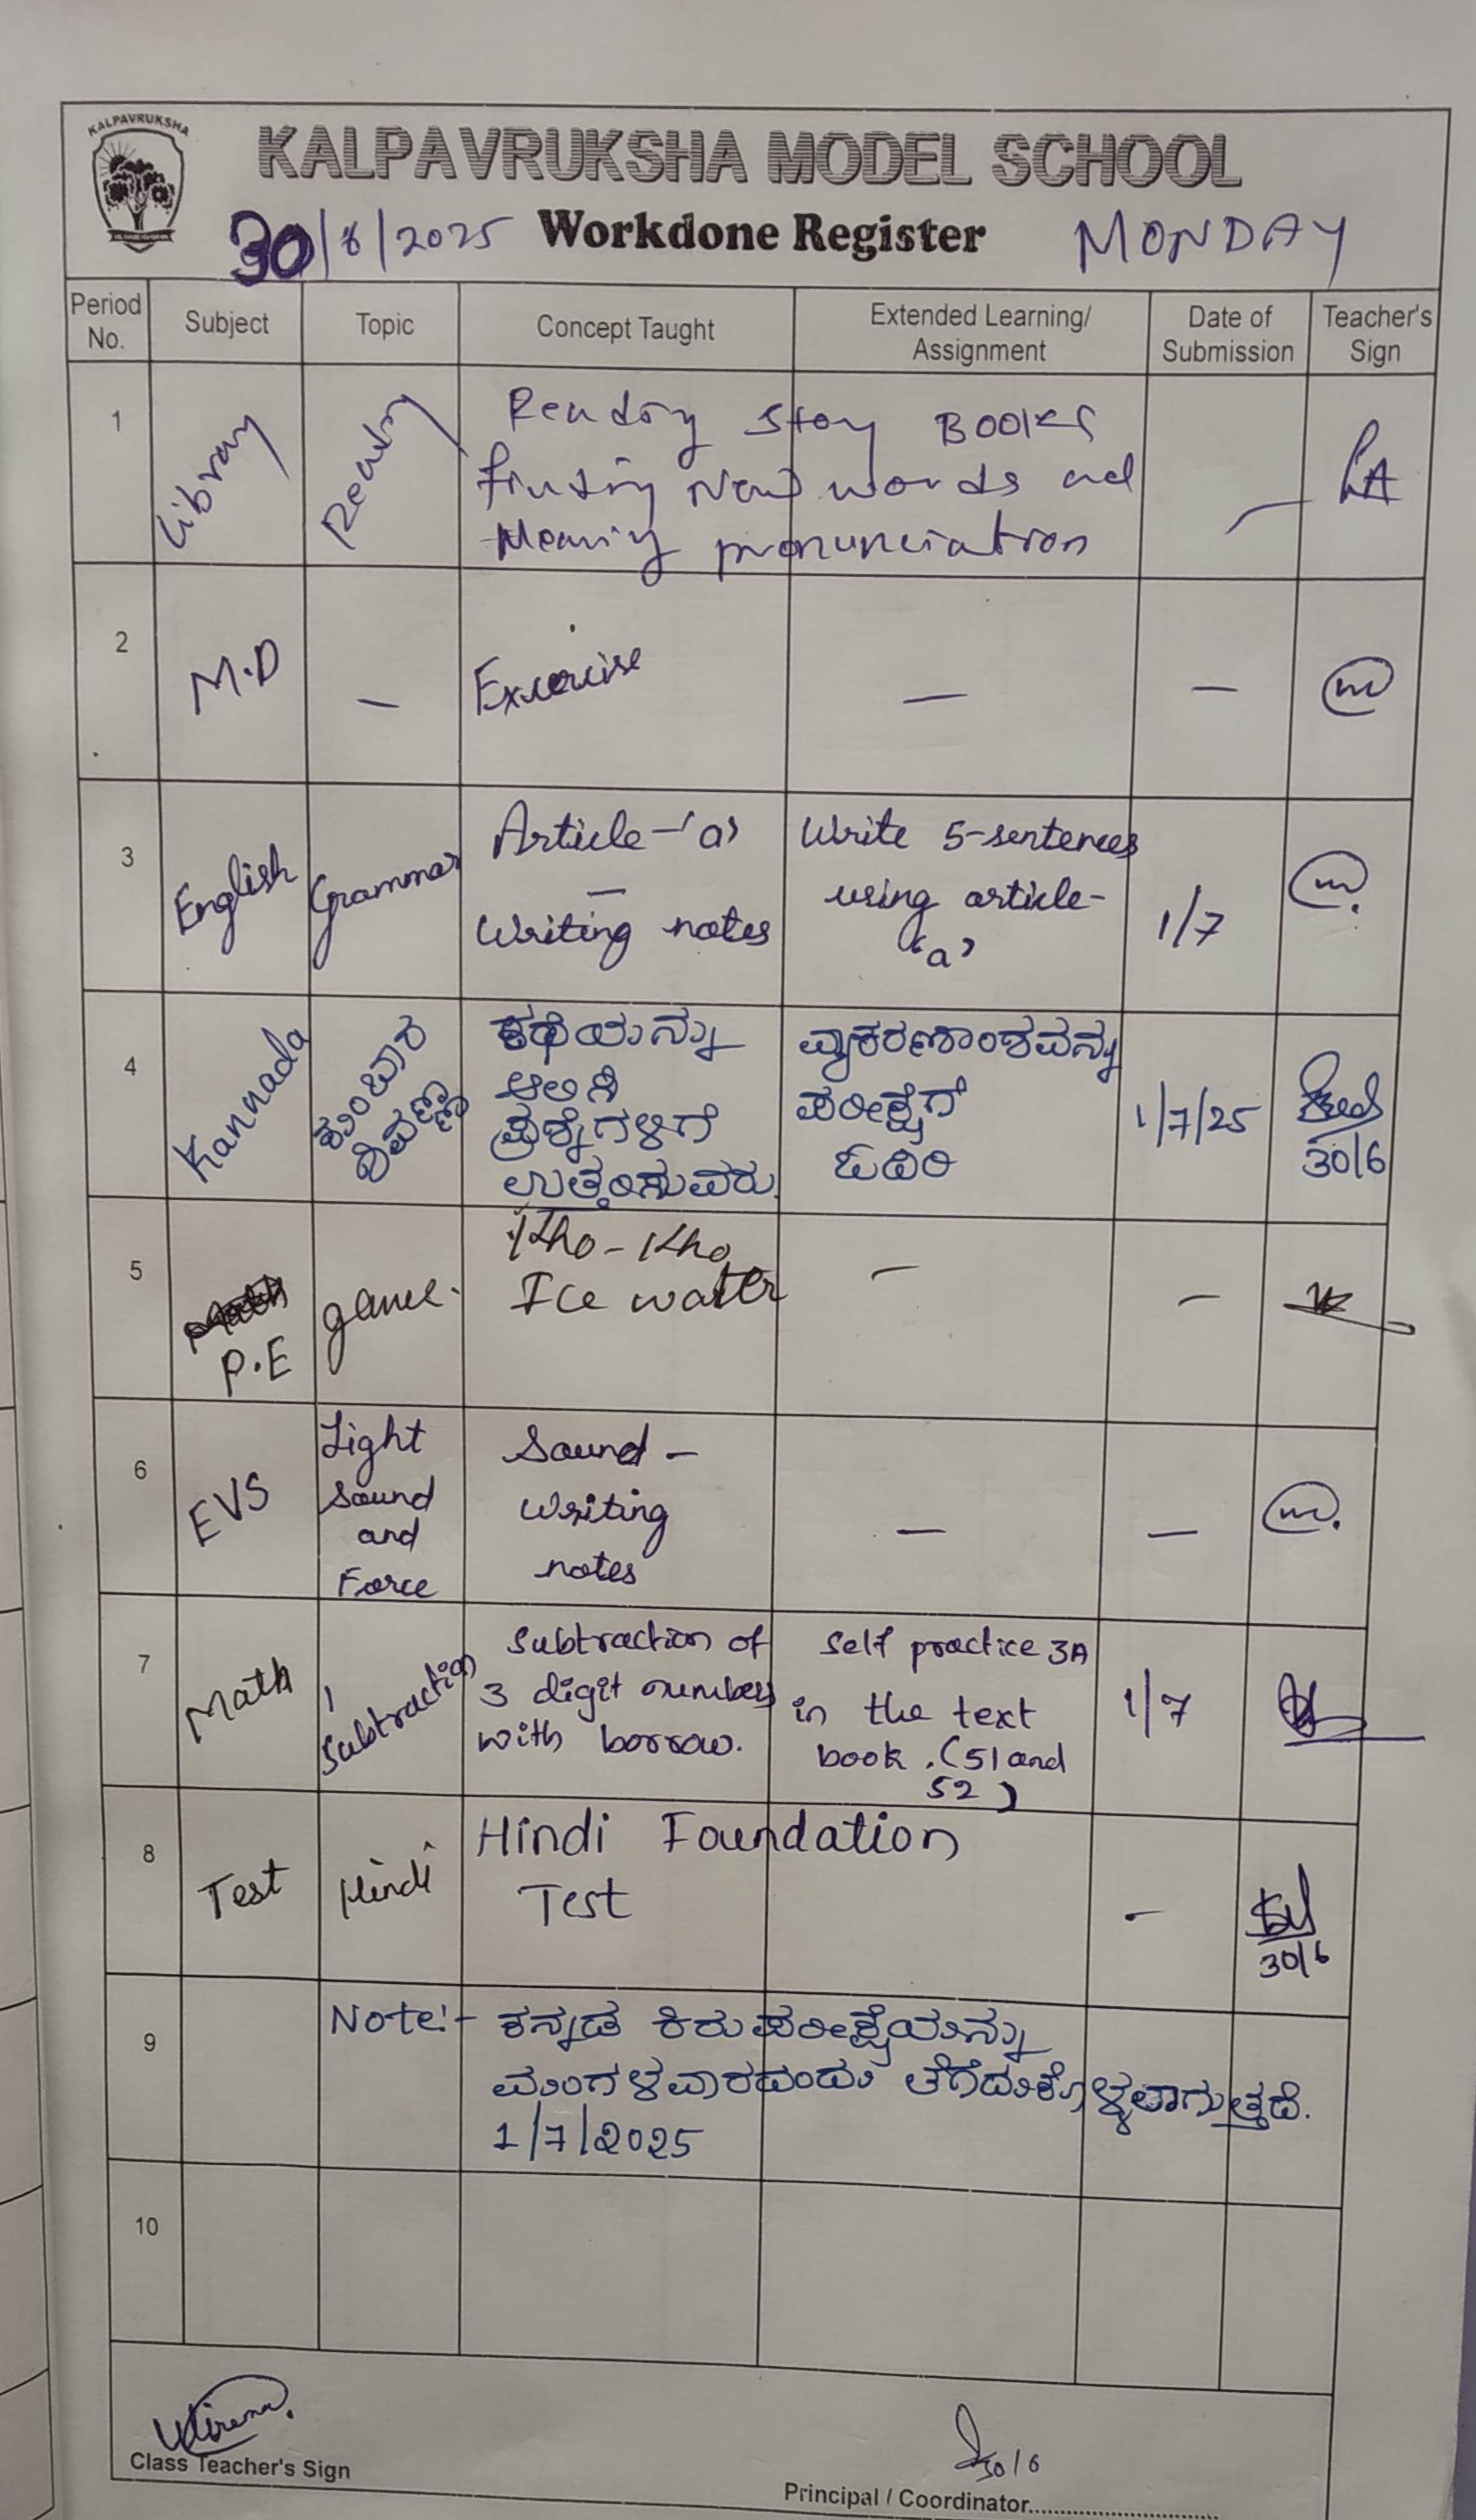 KALPAVRUKSHA
KALPAVRUKSHA MODEL SCHOOL
30/6/2025 Workdone Register MONDAY
Period No. Subject Topic Concept Taught Extended Learning/ Assignment Date of Submission Teacher's Sign
1 Library Reading
Reading Story Books
finding New words and
Meaning pronunciation
—
2 M.D — Excercise — —
3 English Grammar
Article - 'a'
—
Writing notes
Write 5-sentences
using article-
'a'
1/7
4 Kannada
ಕುಂಬಾರ
ಕಥೆಯನ್ನು
ಆಲಿಸಿ
ಪ್ರಶ್ನೆಗಳಿಗೆ
ಉತ್ತರಿಸುವರು.
ವ್ಯಾಕರಣಾಂಶವನ್ನು
ಪರೀಕ್ಷೆಗೆ
ಓದಿರಿ
1/7/25
30/6
5 P.E game.
Kho-Kho
Ice water
— —
6 EVS
Light
Sound
and
Force
Sound -
Writing
notes
— —
7 Math
Subtraction
Subtraction of
3 digit numbers
with borrow.
Self practice 3A
in the text
book. (51 and
52)
1/7
8 Test Hindi
Hindi Foundation
Test
-
30/6
9 Note:- ಕನ್ನಡ ಕಿರುಪರೀಕ್ಷೆಯನ್ನು
ಮಂಗಳವಾರದಂದು ತೆಗೆದುಕೊಳ್ಳಲಾಗುತ್ತದೆ.
1/7/2025
10
30/6
Class Teacher's Sign
Principal / Coordinator